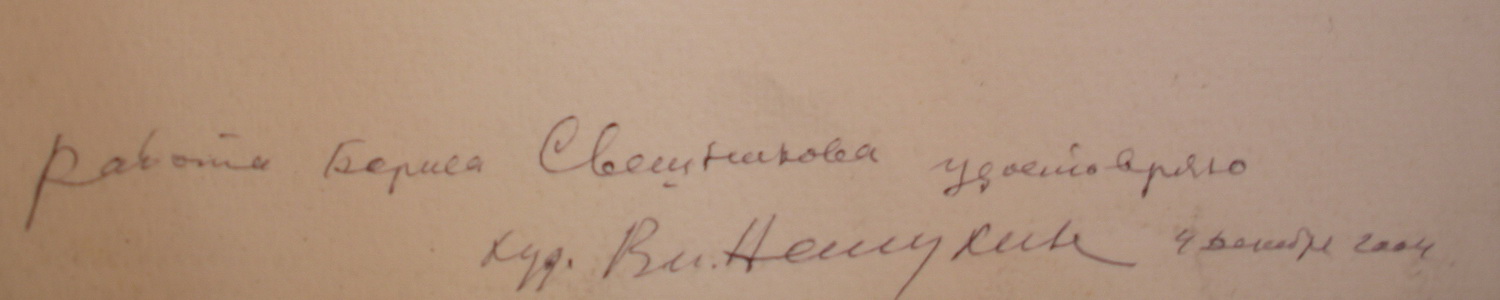 Работа Бориса Свешникова удостовряю
худ. Вл. Немухин 4 декабря 2004